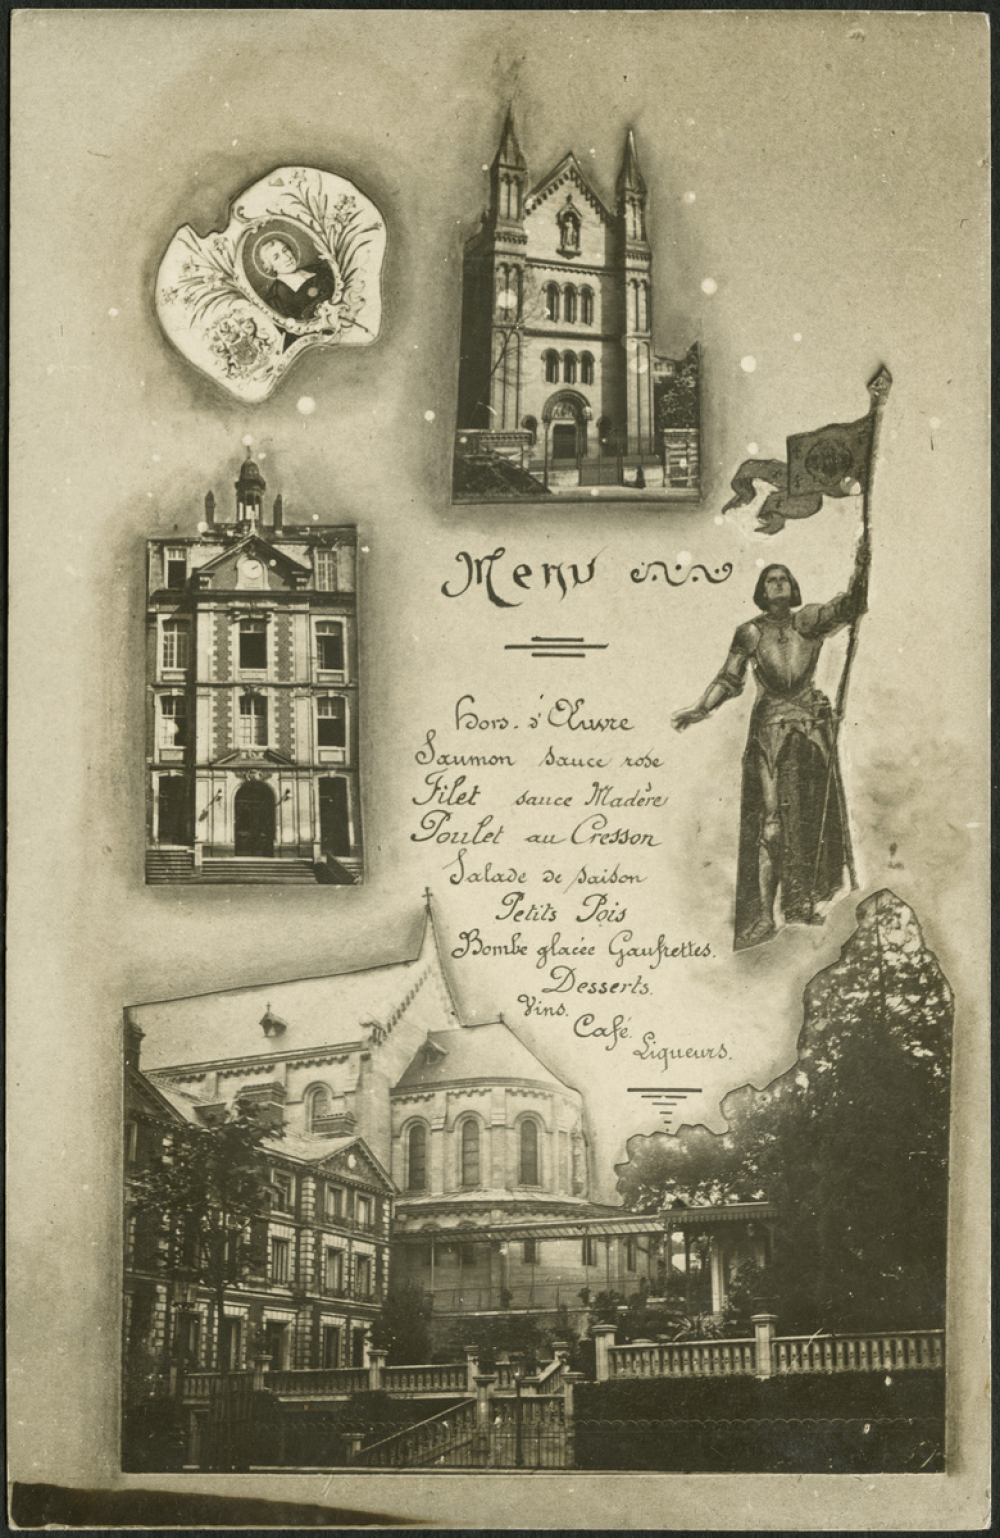 Menu
Hors-d'Œuvre
Saumon sauce rose
Filet sauce Madère
Poulet au Cresson
Salade de saison
Petits Pois
Bombe glacée Gaufrettes.
Desserts.
Vins.
Café.
Liqueurs.